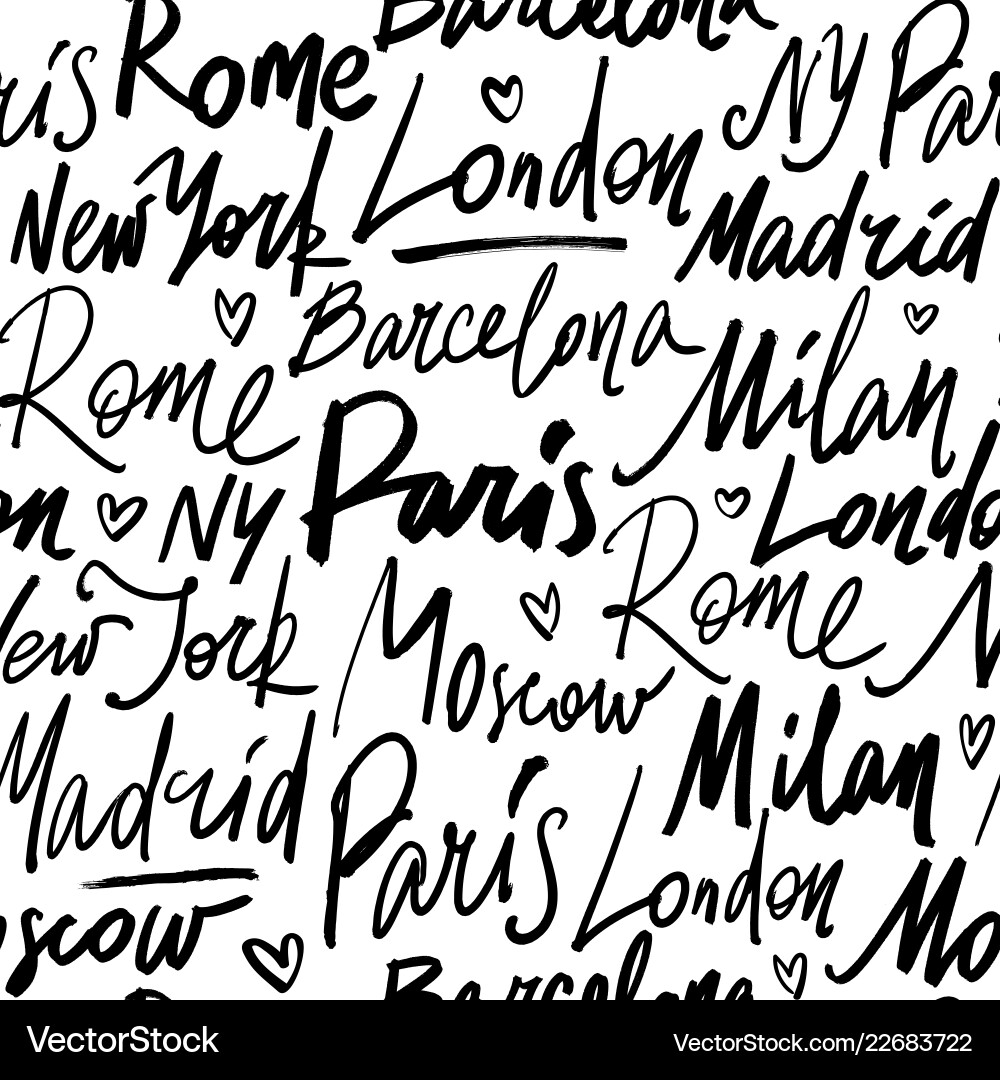 Barcelona
Rome
ris
London
NY
Par
New York
Madrid
Barcelona
Rome
Milan
Paris
on
NY
London
Rome
New York
Moscow
Milan
Madrid
Paris
London
Moscow
Mo
Barcelona
VectorStock
VectorStock.com/22683722